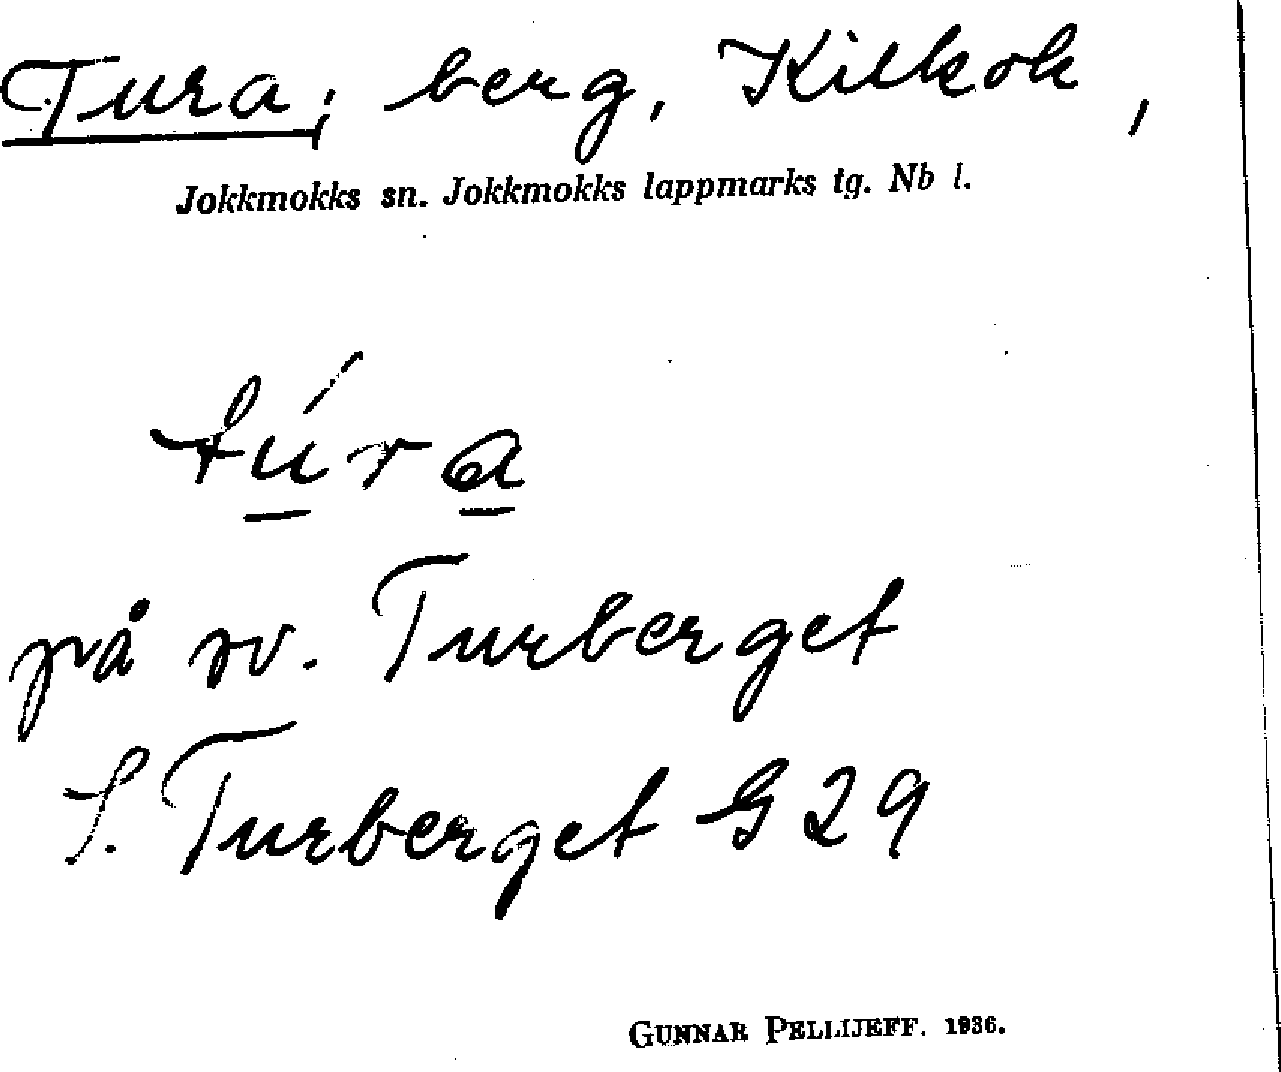 Tura, berg, Kilkok,
Jokkmokks sn. Jokkmokks lappmarks tg. Nb l.
túra
på sv. Turberget
S. Turberget G 29
GUNNAR PELLIJEFF. 1936.